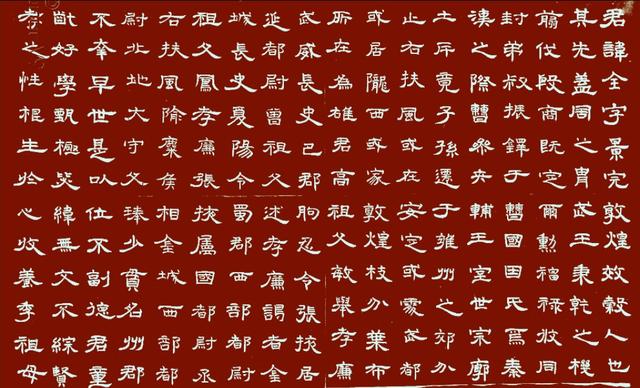 君諱全字景完敦煌效穀人也
其先蓋周之胄武王秉乾之機
翦伐殷商既定爾勳福祿攸同
封弟叔振鐸于曹國因氏焉秦
漢之際曹參夾輔王室世宗廓
土斥竟子孫遷于雍州之郊分
止右扶風或在安定或處武都
或居隴西或家敦煌枝分葉布
所在為雄君高祖父敏舉孝廉
武威長史巴郡朐忍令張掖居
延都尉曾祖父述孝廉謁者金
城長史夏陽令蜀郡西部都尉
祖父鳳孝廉張掖屬國都尉丞
右扶風隃麋侯相金城西部都
尉北地大守父琫少貫名州郡
不幸早世是以位不副德君童
齓好學甄極毖緯無文不綜賢
孝之性根生於心收養季祖母